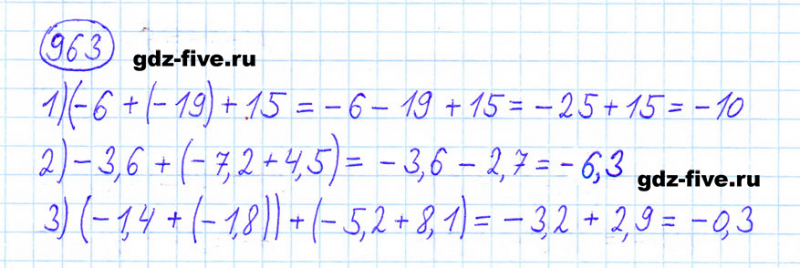 963
gdz-five.ru
1) (-6 + (-19) + 15 = -6 - 19 + 15 = -25 + 15 = -10
2) -3,6 + (-7,2 + 4,5) = -3,6 - 2,7 = -6,3
gdz-five.ru
3) (-1,4 + (-1,8)) + (-5,2 + 8,1) = -3,2 + 2,9 = -0,3